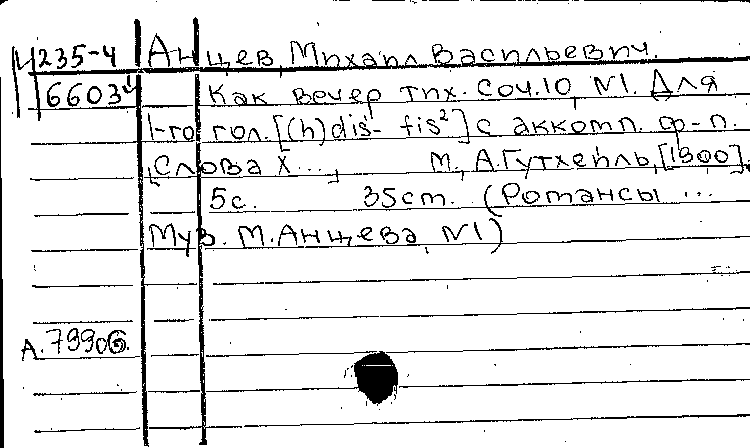 Ц235-4 Анцев, Михаил Васильевич.
6603ч Как вечер тих. Соч.10, N1. Для
1-го гол. [(h)dis¹- fis²] с аккомп. ф-п.
[Слова Х...] М., А.Гутхейль, [1900].
5с. 35ст. (Романсы ...
Муз. М.Анцева, N1)
А.799об.